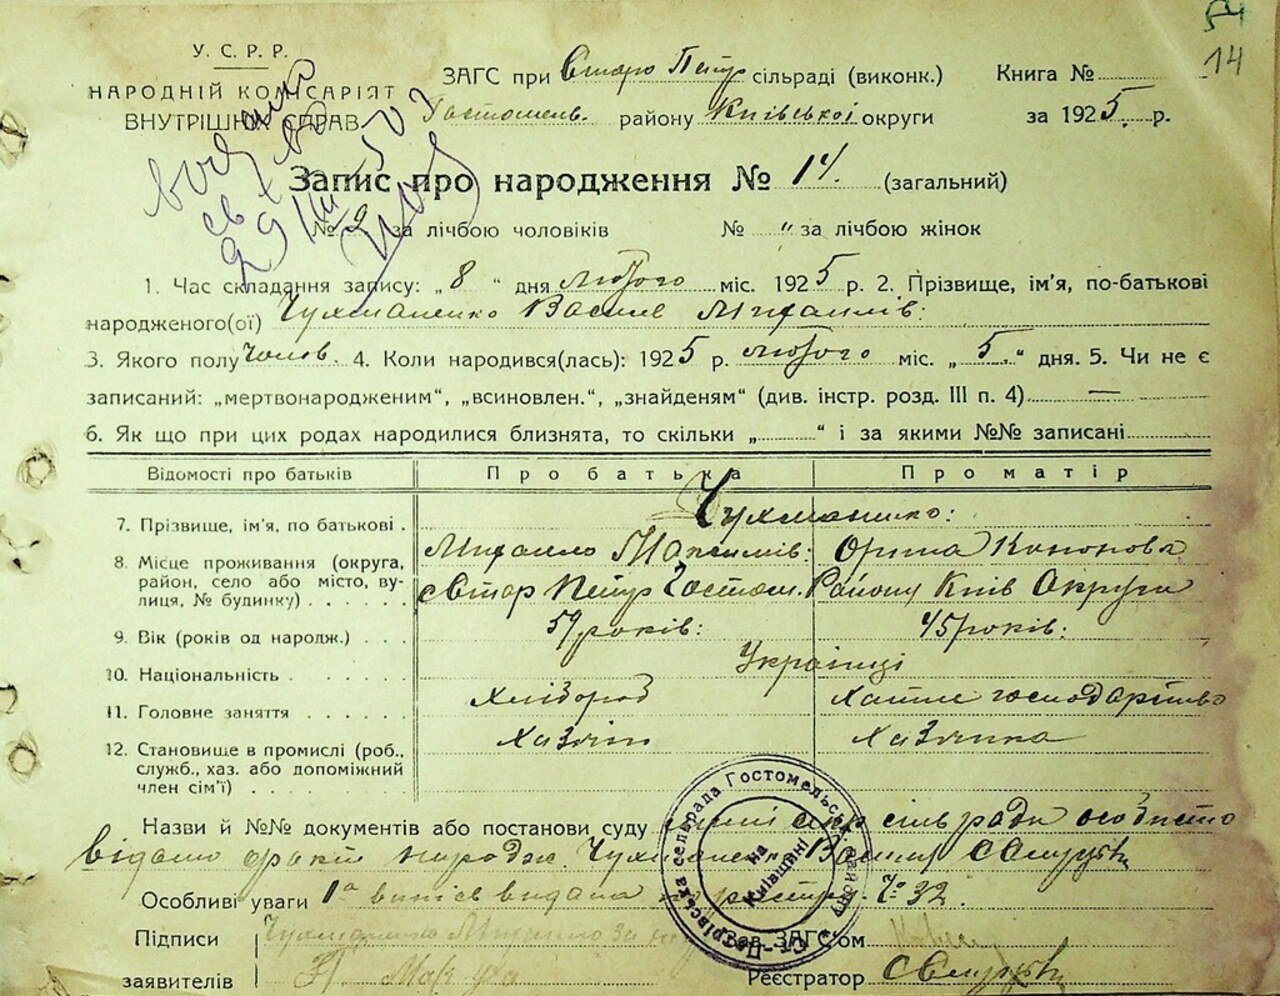 14
У. С. Р. Р.
НАРОДНІЙ КОМІСАРІЯТ
ВНУТРІШНІХ СПРАВ
ЗАГС при Старо Петр сільраді (виконк.) Книга №
Гостомель. району Київської округи за 1925. р.
Запис про народження № 14. (загальний)
№ 9 за лічбою чоловіків № " за лічбою жінок
1. Час складання запису: „8“ дня лютого міс. 1925 р. 2. Прізвище, ім'я, по-батькові
народженого(ої) Чухманенко Василь Михайлів:
3. Якого полу Чолов. 4. Коли народився(лась): 1925 р. лютого міс. „5.“ дня. 5. Чи не є
записаний: „мертвонародженим“, „всиновлен.“, „знайденям“ (див. інстр. розд. III п. 4) —
6. Як що при цих родах народилися близнята, то скільки „ “ і за якими №№ записані
Відомості про батьків Про батька Про матір
7. Прізвище, ім'я, по батькові . Чухманенко:
Михайло Максимів: Орина Кононова
8. Місце проживання (округа,
район, село або місто, ву-
лиця, № будинку) . . . . . Стар Петр Гостом. Району Київ Округи
9. Вік (років од народж.) . . . років: 45 років:
10. Національність . . . . . . Українці
11. Головне заняття . . . . . . Хлібороб Хатнє господарство
12. Становище в промислі (роб.,
служб., хаз. або допоміжний
член сім'ї) . . . . . . . . Хазяїн Хазяйка
Назви й №№ документів або постанови суду сільради особисто
відомо факт народж. Чухманен Василя
Особливі уваги 1а випись видана по реєстр. № 32.
Підписи
заявителів
Чухманенко Михайло
Зав. ЗАГС'ом
Реєстратор
Ст.-Петрівська сельрада Гостомельськ. району
на Київщині